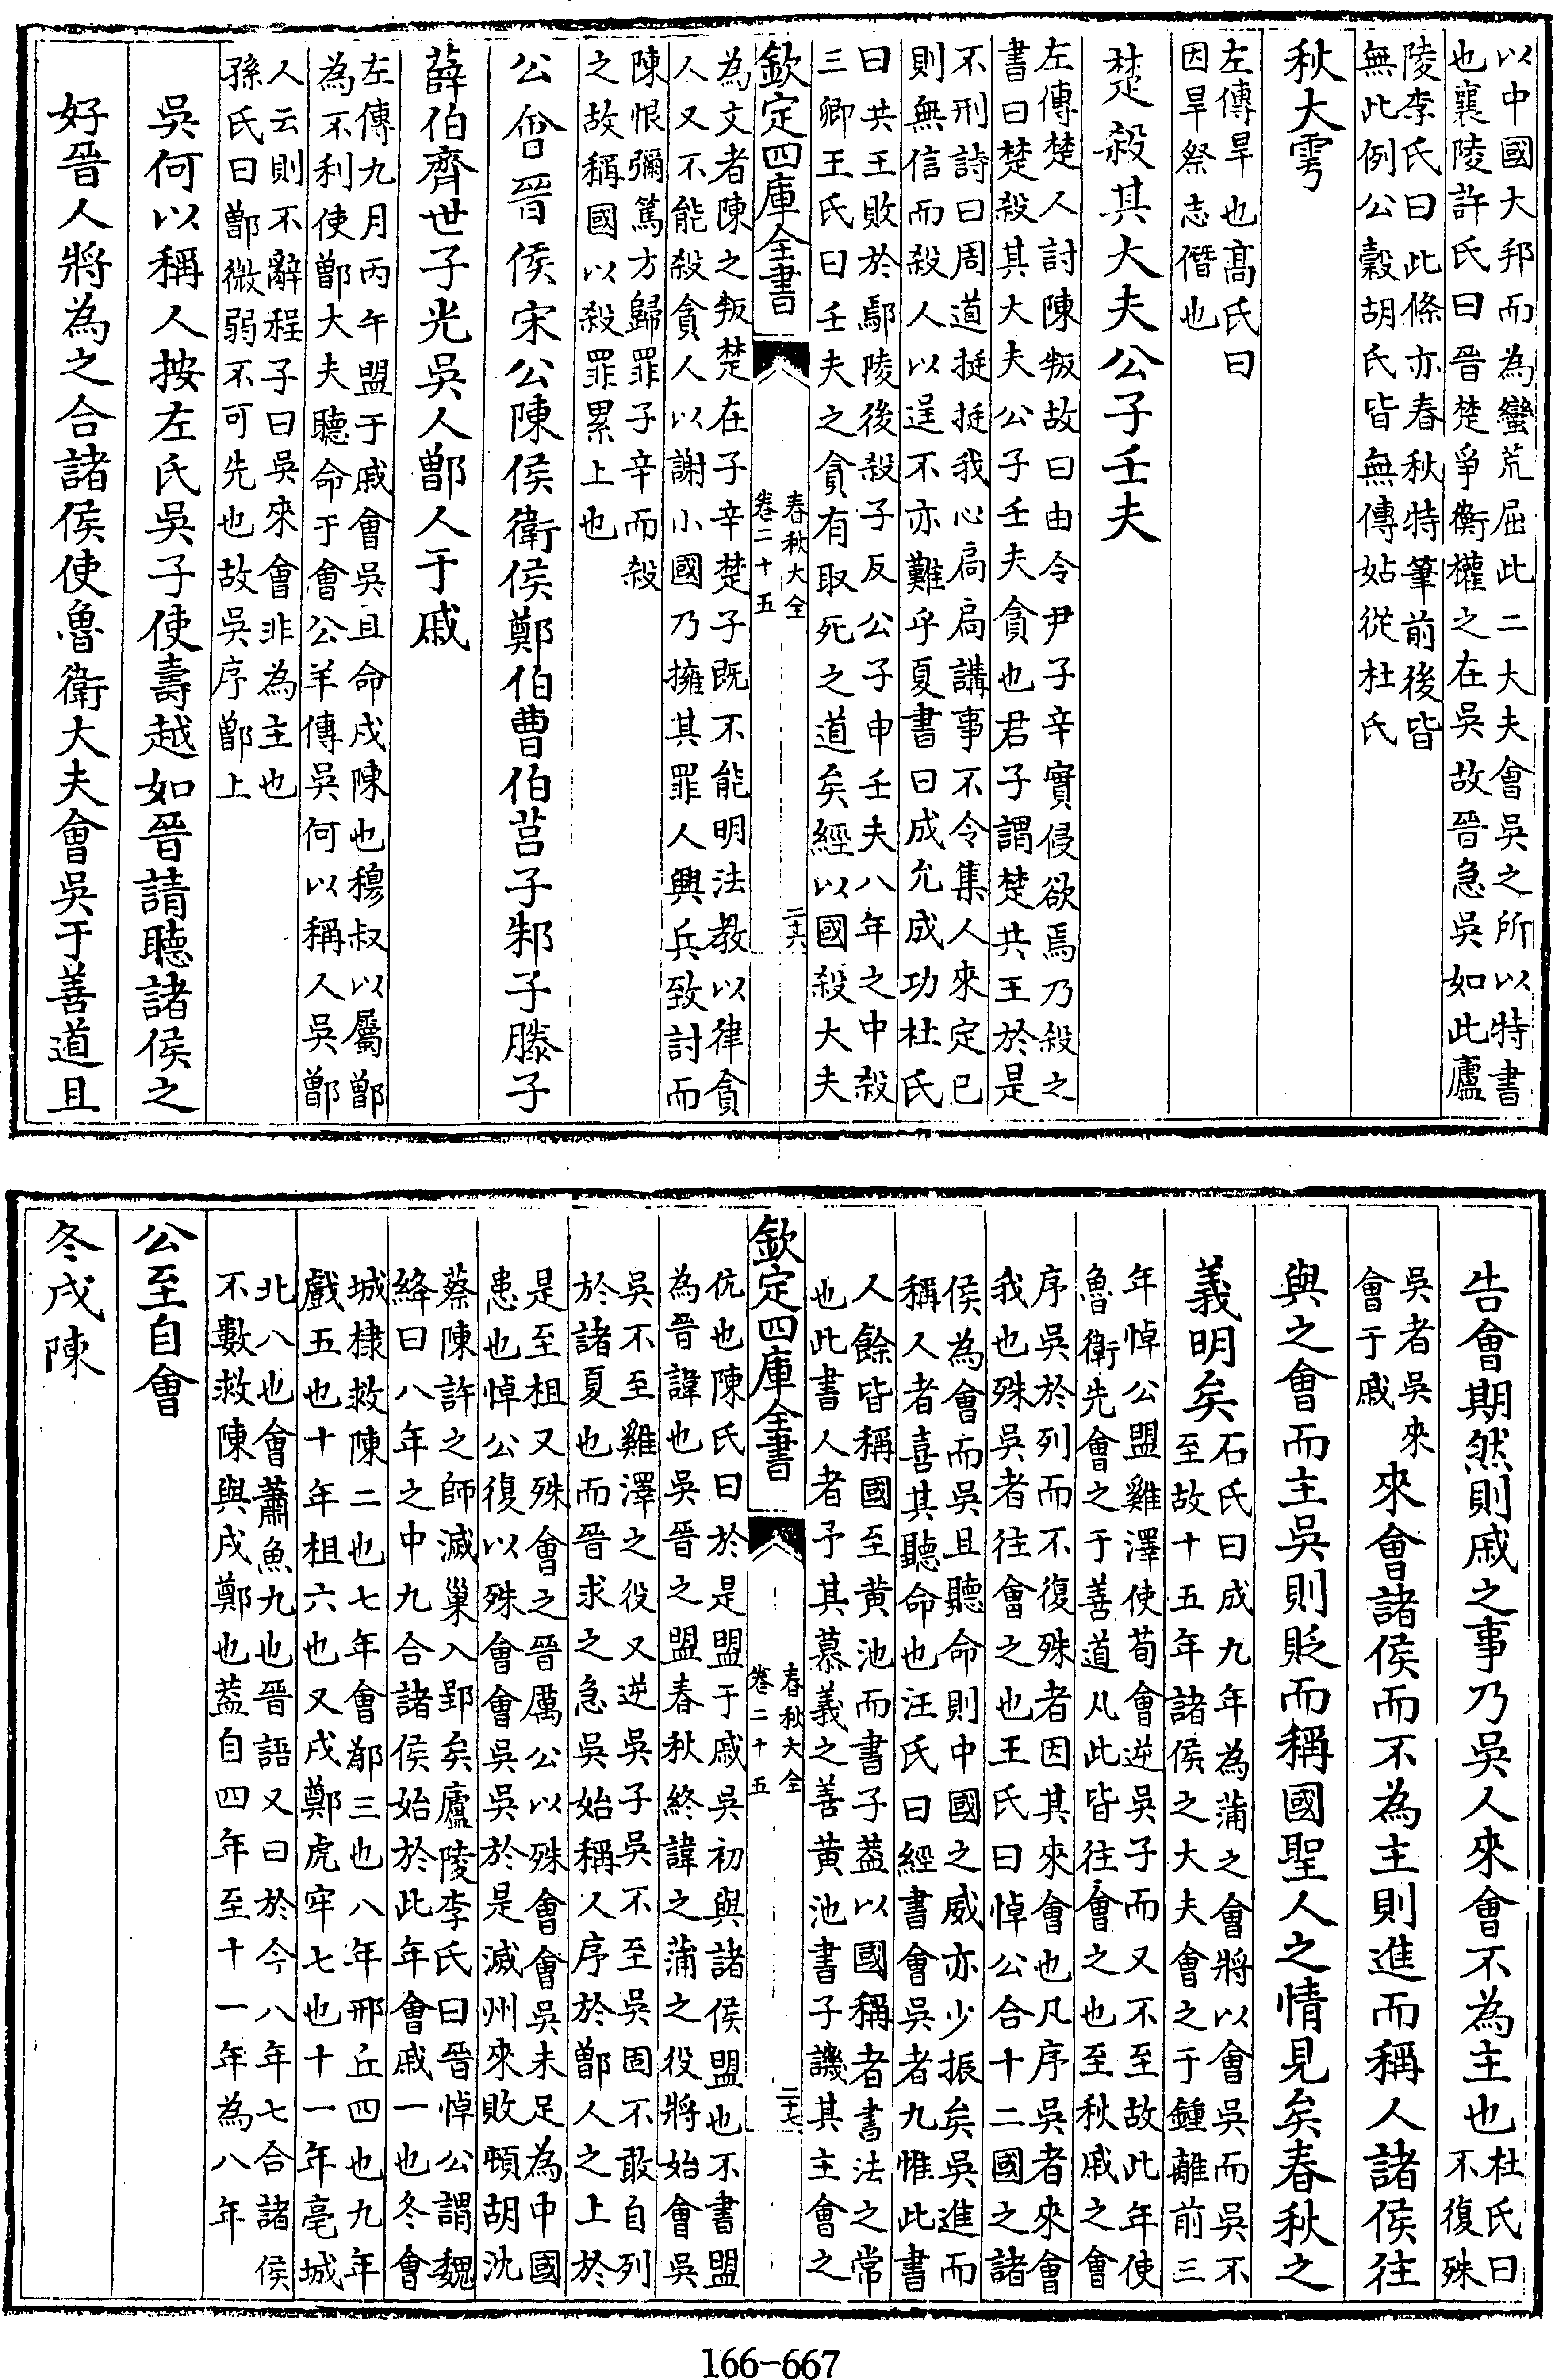 以中國大邦而為蠻荒屈此二大夫會吳之所以特書
也襄陵許氏曰晉楚爭衡權之在吳故晉急吳如此廬
陵李氏曰此條亦春秋特筆前後皆
無此例公穀胡氏皆無傳姑從杜氏
秋大雩
左傳旱也髙氏曰
因旱祭志僭也
楚殺其大夫公子壬夫
左傳楚人討陳叛故曰由令尹子辛實侵欲焉乃殺之
書曰楚殺其大夫公子壬夫貪也君子謂楚共王於是
不刑詩曰周道挺挺我心扃扃講事不令集人來定已
則無信而殺人以逞不亦難乎夏書曰成允成功杜氏
曰共王敗於鄢陵後殺子反公子申壬夫八年之中殺
三卿王氏曰壬夫之貪有取死之道矣經以國殺大夫
欽定四庫全書
春秋大全
卷二十五
二十六
為文者陳之叛楚在子辛楚子既不能明法教以律貪
人又不能殺貪人以謝小國乃擁其罪人興兵致討而
陳恨彌篤方歸罪子辛而殺
之故稱國以殺罪累上也
公會晉侯宋公陳侯衛侯鄭伯曹伯莒子邾子滕子
薛伯齊世子光吳人鄫人于戚
左傳九月丙午盟于戚會吳且命戍陳也穆叔以屬鄫
為不利使鄫大夫聽命于會公羊傳吳何以稱人吳鄫
人云則不辭程子曰吳來會非為主也
孫氏曰鄫微弱不可先也故吳序鄫上
吳何以稱人按左氏吳子使壽越如晉請聽諸侯之
好晉人將為之合諸侯使魯衛大夫會吳于善道且
告會期然則戚之事乃吳人來會不為主也杜氏曰
不復殊
吳者吳來
會于戚
來會諸侯而不為主則進而稱人諸侯往
與之會而主吳則貶而稱國聖人之情見矣春秋之
義明矣石氏曰成九年為蒲之會將以會吳而吳不
至故十五年諸侯之大夫會之于鍾離前三
年悼公盟雞澤使荀會逆吳子而又不至故此年使
魯衛先會之于善道凡此皆往會之也至秋戚之會
序吳於列而不復殊者因其來會也凡序吳者來會
我也殊吳者往會之也王氏曰悼公合十二國之諸
侯為會而吳且聽命則中國之威亦少振矣吳進而
稱人者喜其聽命也汪氏曰經書會吳者九惟此書
人餘皆稱國至黄池而書子葢以國稱者書法之常
也此書人者予其慕義之善黄池書子譏其主會之
欽定四庫全書
春秋大全
卷二十五
二十七
伉也陳氏曰於是盟于戚吳初與諸侯盟也不書盟
為晉諱也吳晉之盟春秋終諱之蒲之役將始會吳
吳不至雞澤之役又逆吳子吳不至吳固不敢自列
於諸夏也而晉求之急吳始稱人序於鄫人之上於
是至柤又殊會之晉厲公以殊會會吳未足為中國
患也悼公復以殊會會吳吳於是滅州來敗頓胡沈
蔡陳許之師滅巢入郢矣廬陵李氏曰晉悼公謂魏
絳曰八年之中九合諸侯始於此年會戚一也冬會
城棣救陳二也七年會鄬三也八年邢丘四也九年
戲五也十年柤六也又戍鄭虎牢七也十一年亳城
北八也會蕭魚九也晉語又曰於今八年七合諸侯
不數救陳與戍鄭也葢自四年至十一年為八年
公至自會
冬戍陳
166-667